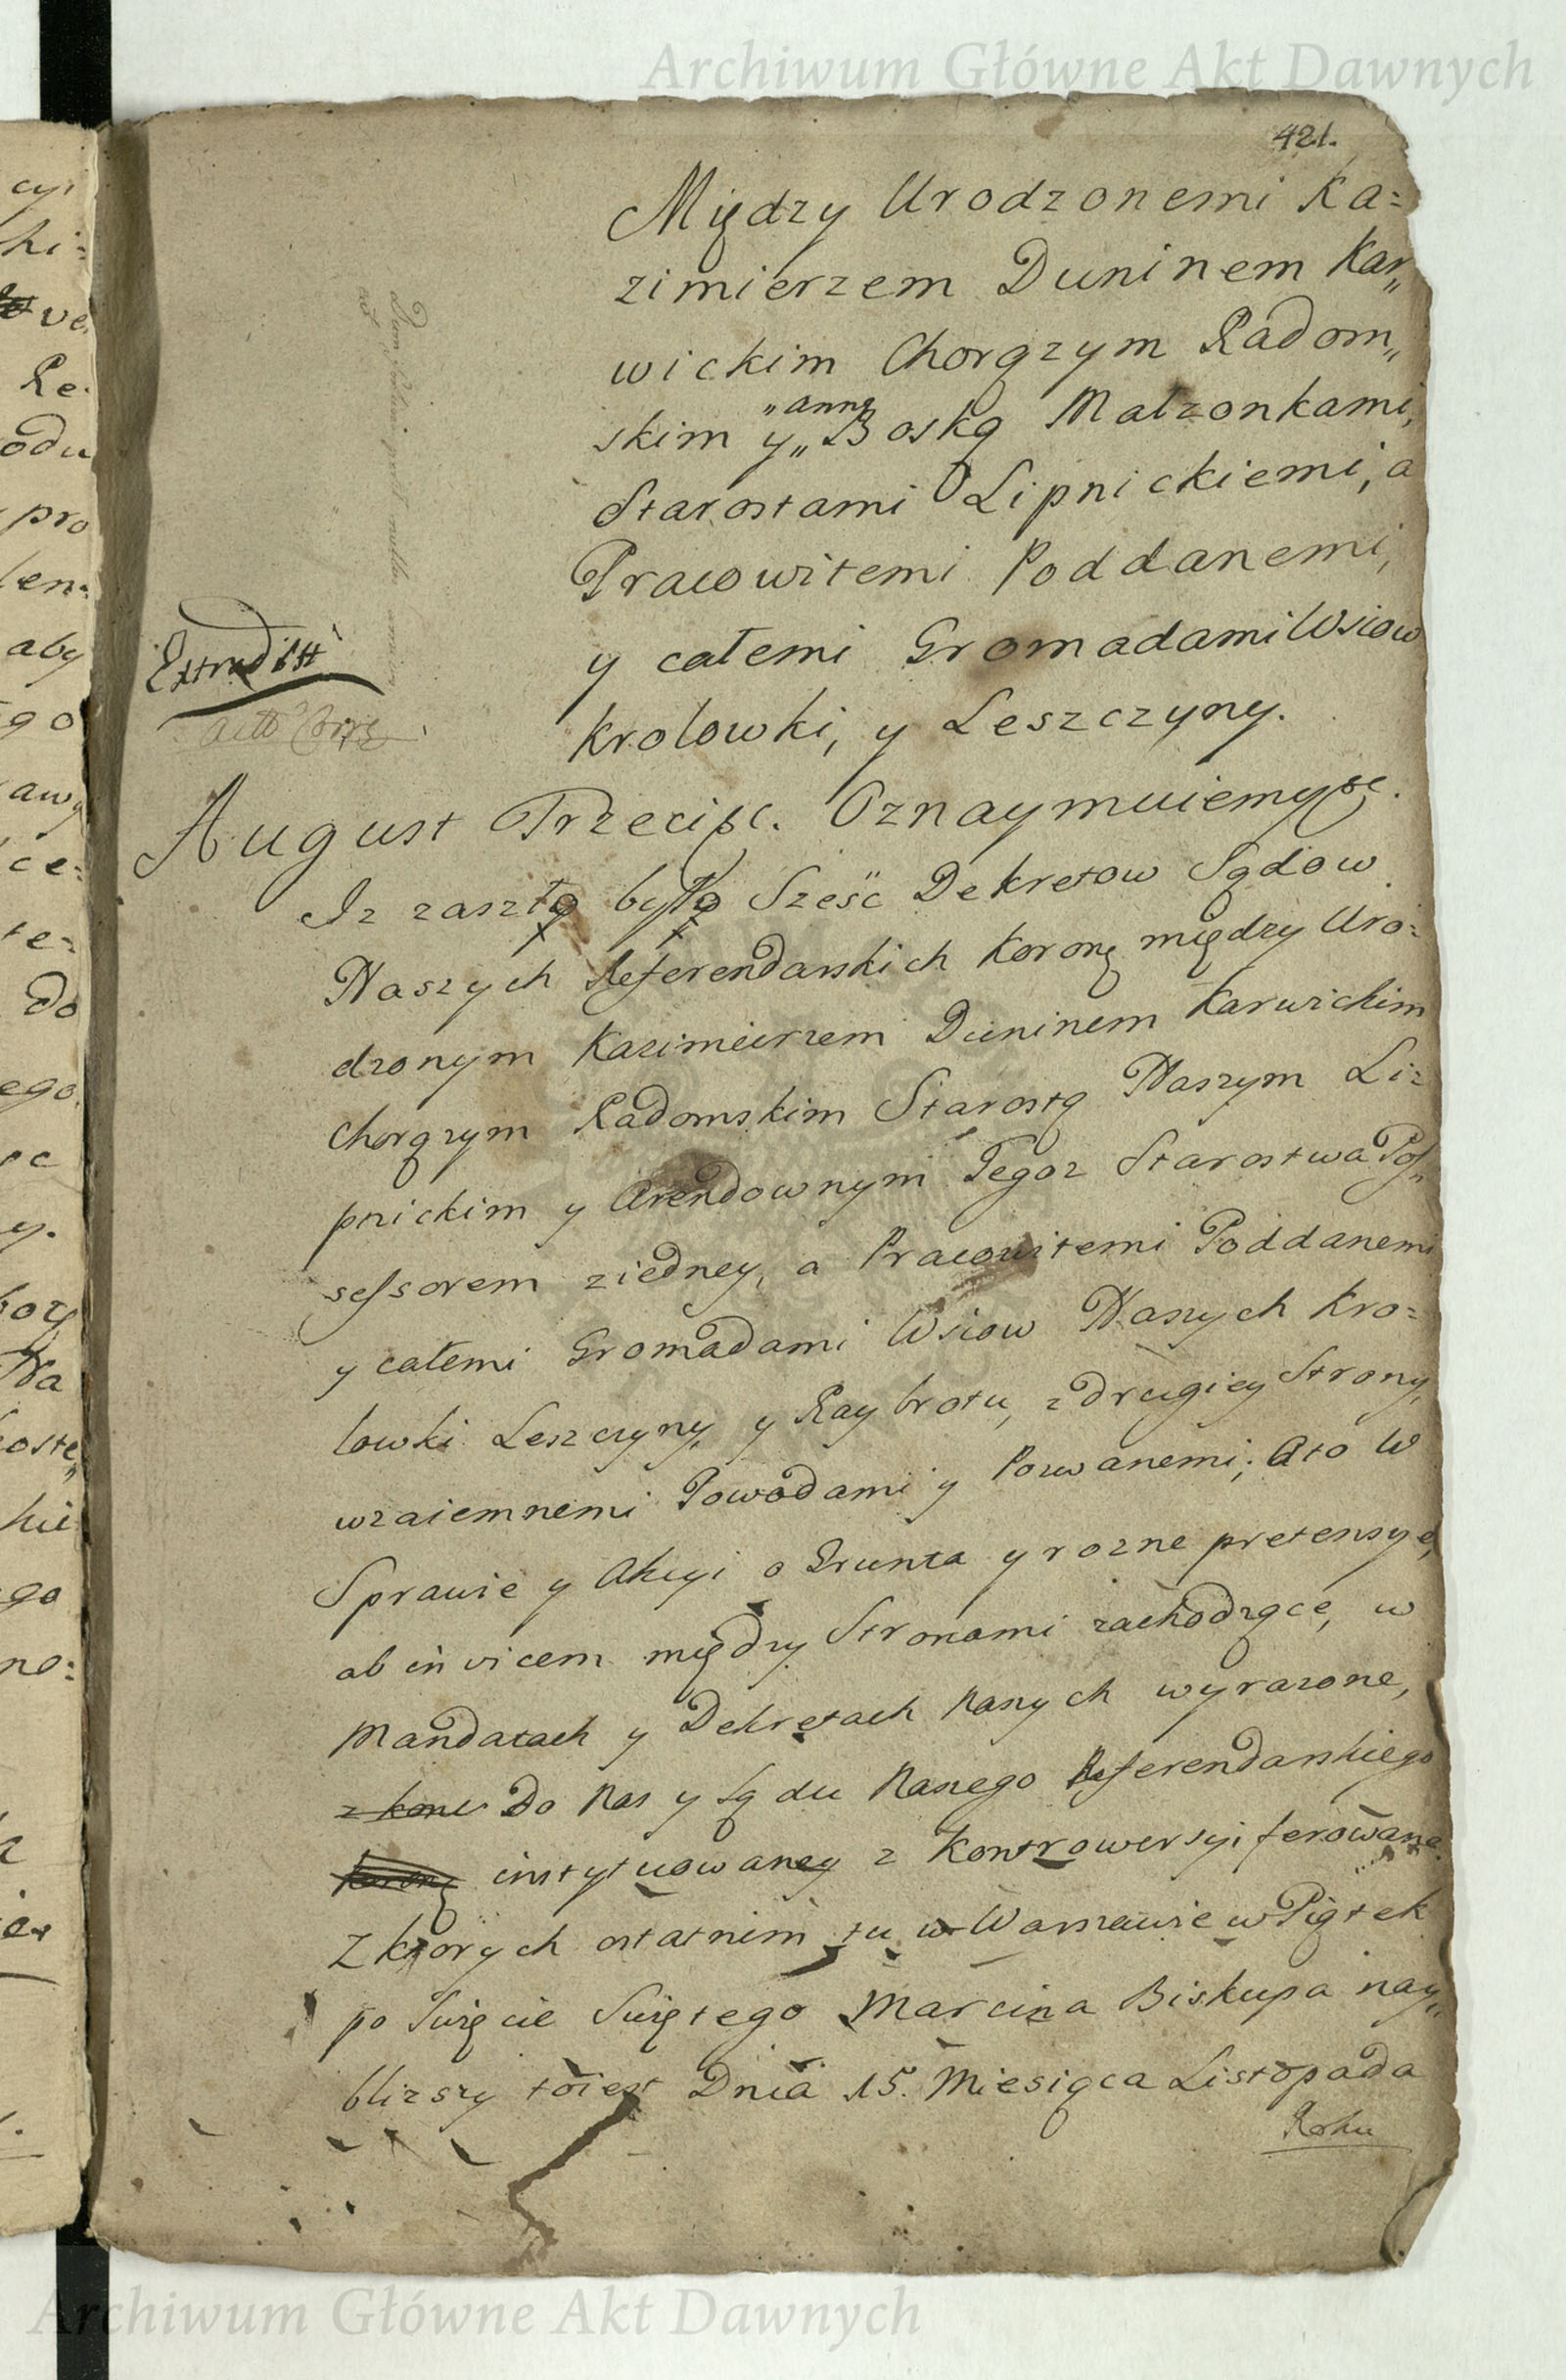 Archiwum Główne Akt Dawnych
421.
Między Urodzonemi Ka=
zimierzem Duninem Kar„
wickim Chorązym Radom„
„anną
skim y„ Boską Malzonkami,
Starostami Lipnickiemi, a
Pracowitemi Poddanemi,
y całemi Gromadami Wsiow
Krolowki, y Leszczyny.
Extrad: est
August Trzeci &c. Oznaymuiemy &c.
Iz zaszło było Sześć Dekretow Sądow
Naszych Referendarskich Koronę między Uro=
dzonym Kazimierzem Duninem Karwickim
Chorązym Radomskim Starostą Naszym Li=
pnickim y Arendownym Tegoz Starostwa Pos„
sessorem ziedney, a Pracowitemi Poddanemi
y całemi Gromadami Wsiow Naszych Kro=
lowki Leszczyny, y Raybrotu, z drugiey Strony,
wzaiemnemi Powodami y Pozwanemi; Ato W
Sprawie y Akcyi o Grunta y rozne pretensye,
ab invicem między Stronami zachodzące, w
Mandatach y Dekretach Naszych wyrazone,
Do Nas y Sądu Naszego Referendarskiego
Koronę instytuowaney z Kontrowersyi ferowane
Z ktorych ostatnim tu w Warszawie w Piątek
po Swięcie Swiętego Marcina Biskupa nay„
blizszy toiest Dnia 15. Miesiąca Listopada
Roku
Archiwum Główne Akt Dawnych